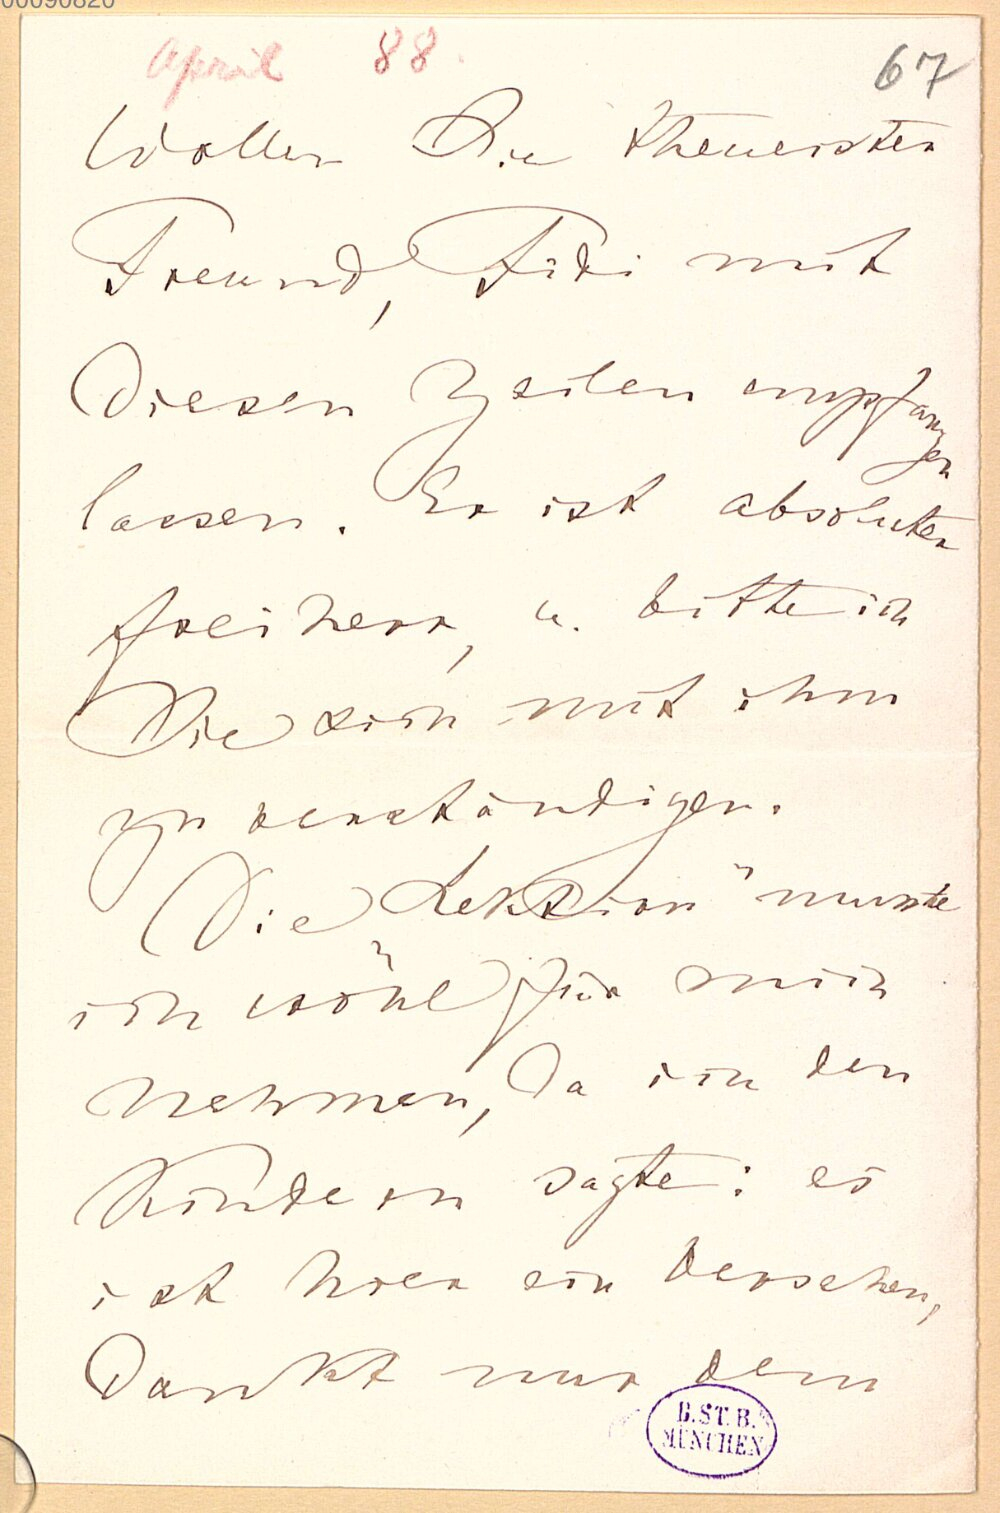 00090820
April 88.
67
Wollen Sie theuerster
Freund, Fidi mit
diesen Zeilen empfangen
lassen. Er ist absoluter
Freiherr, u. bitte ich
Sie sich mit ihm
zu verständigen.
Die "Lektion" musste
ich wohl für mich
nehmen, da ich den
Kindern sagte: es
ist hier ein Versehen,
dankt nur dem
B.ST.B.
MÜNCHEN